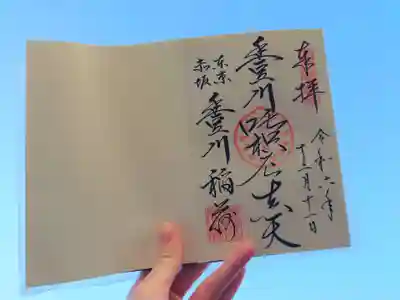 奉拝
令和六年
十一月十一日
豊川吒枳尼真天
東京
赤坂
豊川稲荷